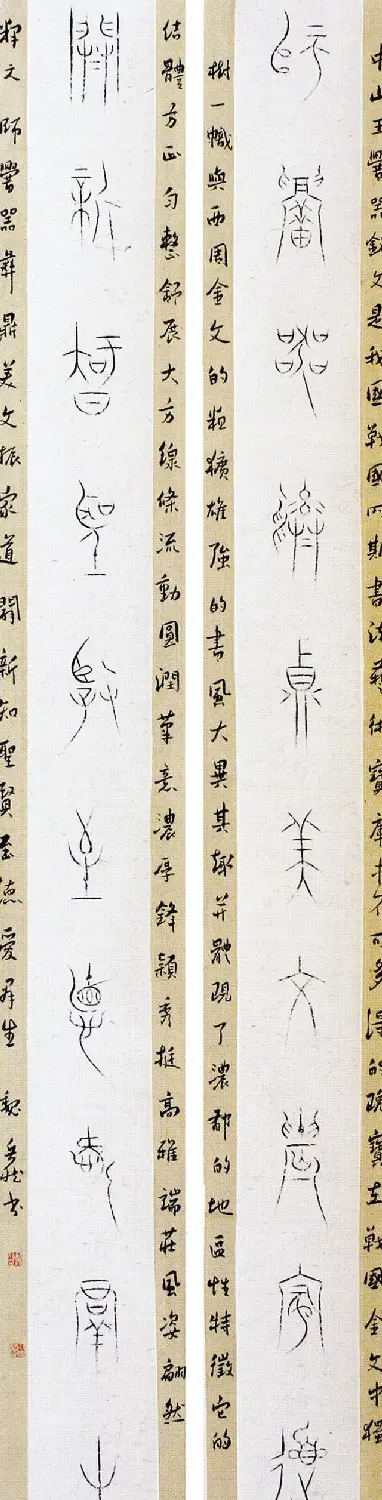 中山王嚳器銘文是我國戰國中期書法藝術寶庫中不可多得的瑰寶在戰國金文中獨
師嚳器彝鼎美文振家道
樹一幟與西周金文的粗獷雄強的書風大異其趣并體現了濃郁的地區性特徵它的
結體方正勻整舒展大方線條流動圓潤筆意濃厚鋒穎秀挺高雅端莊風姿翩然
開新智聖賢至惪愛群生
釋文師嚳器彝鼎美文振家道開新知聖賢至德愛群生